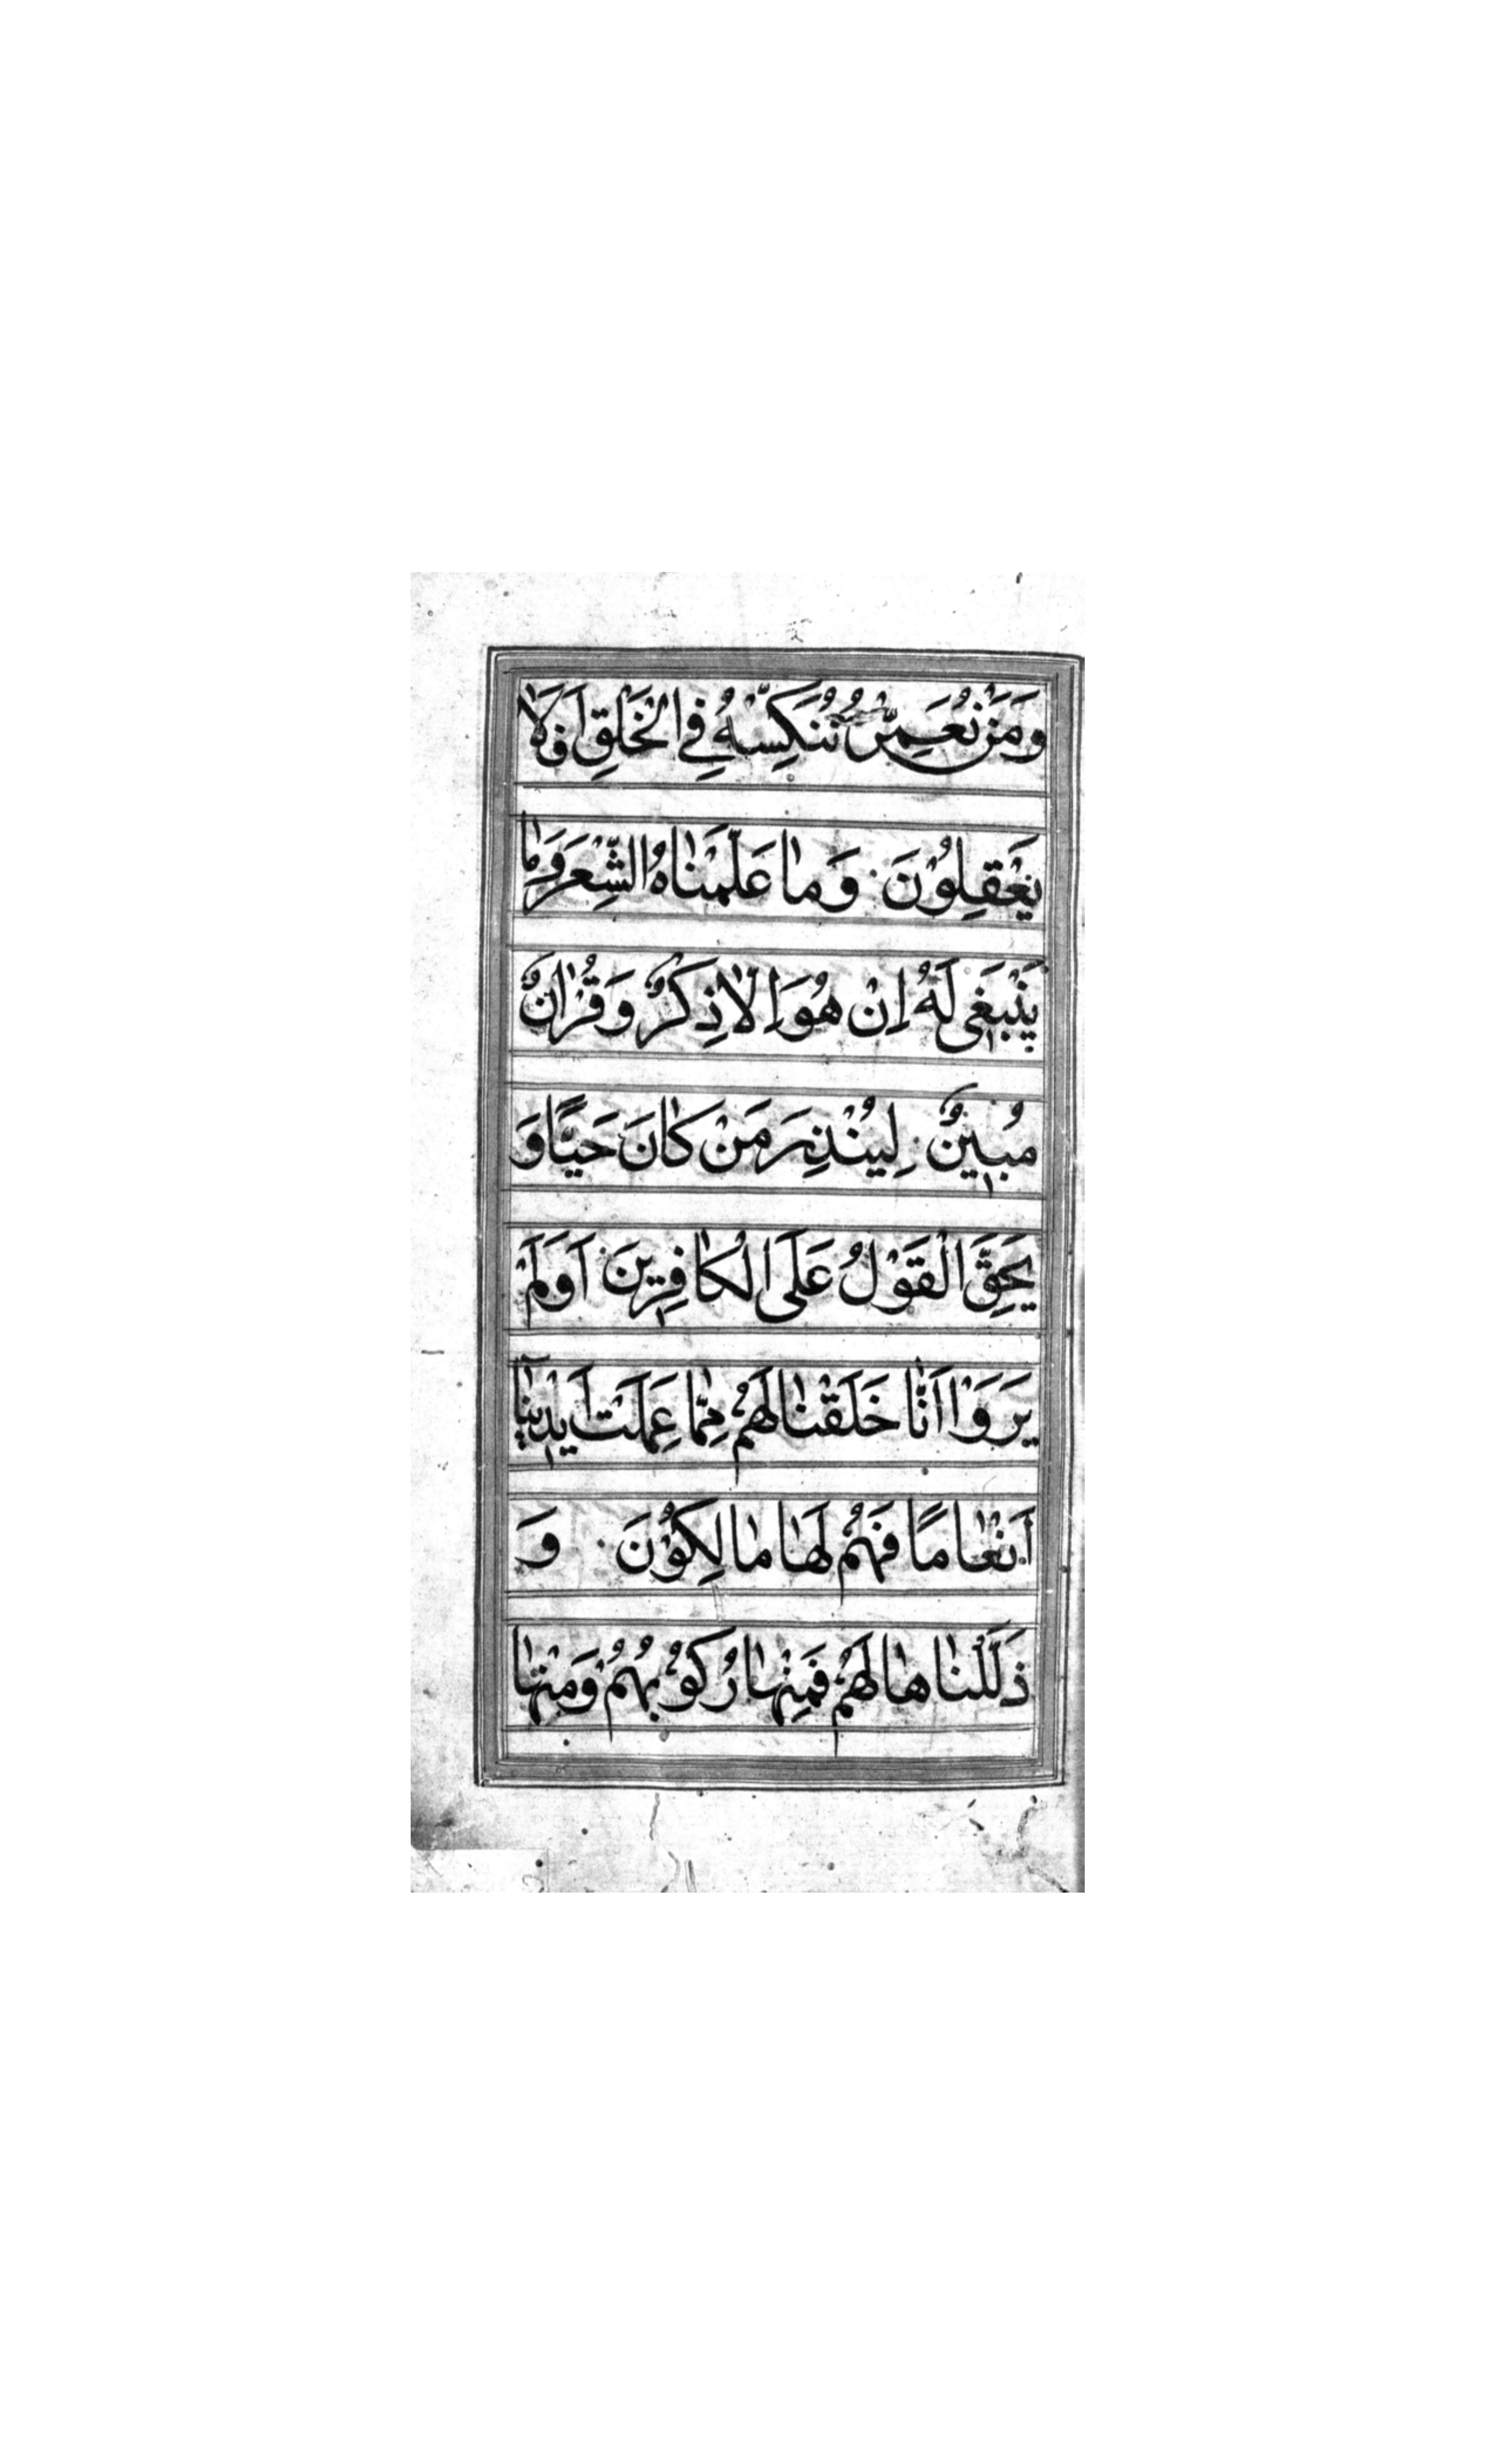 وَمَنْ نُعَمِّرْهُ نُنَكِّسْهُ فِي الْخَلْقِ اَفَلَا
يَعْقِلُوْنَ وَمَا عَلَّمْنَاهُ الشِّعْرَ وَمَا
يَنْبَغِي لَهُ اِنْ هُوَ اِلَّا ذِكْرٌ وَقُرْانٌ
مُبِيْنٌ لِيُنْذِرَ مَنْ كَانَ حَيًّا وَ
يَحِقَّ الْقَوْلُ عَلَى الْكَافِرِيْنَ اَوَلَمْ
يَرَوْا اَنَّا خَلَقْنَا لَهُمْ مِمَّا عَمِلَتْ اَيْدِيْنَا
اَنْعَامًا فَهُمْ لَهَا مَالِكُوْنَ وَ
ذَلَّلْنَاهَا لَهُمْ فَمِنْهَا رَكُوْبُهُمْ وَمِنْهَا